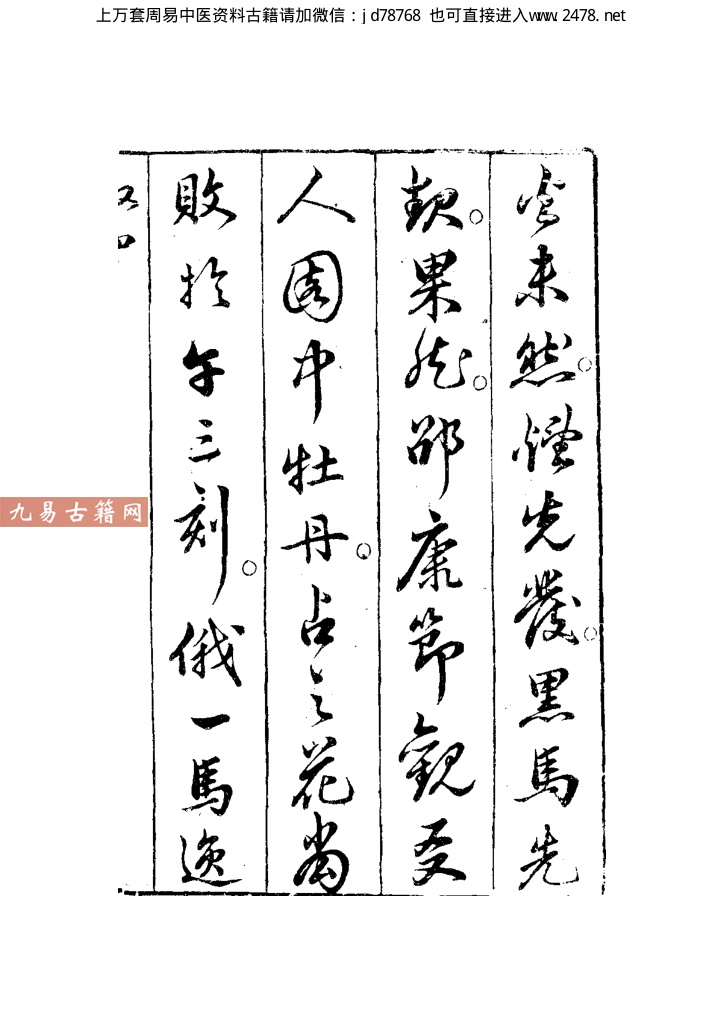 上万套周易中医资料古籍请加微信：jd78768 也可直接进入www.2478.net
未然煙先發黑馬先
觀果然邵康節觀友
人園中牡丹占之花當
敗於午三刻俄一馬逸
九易古籍网